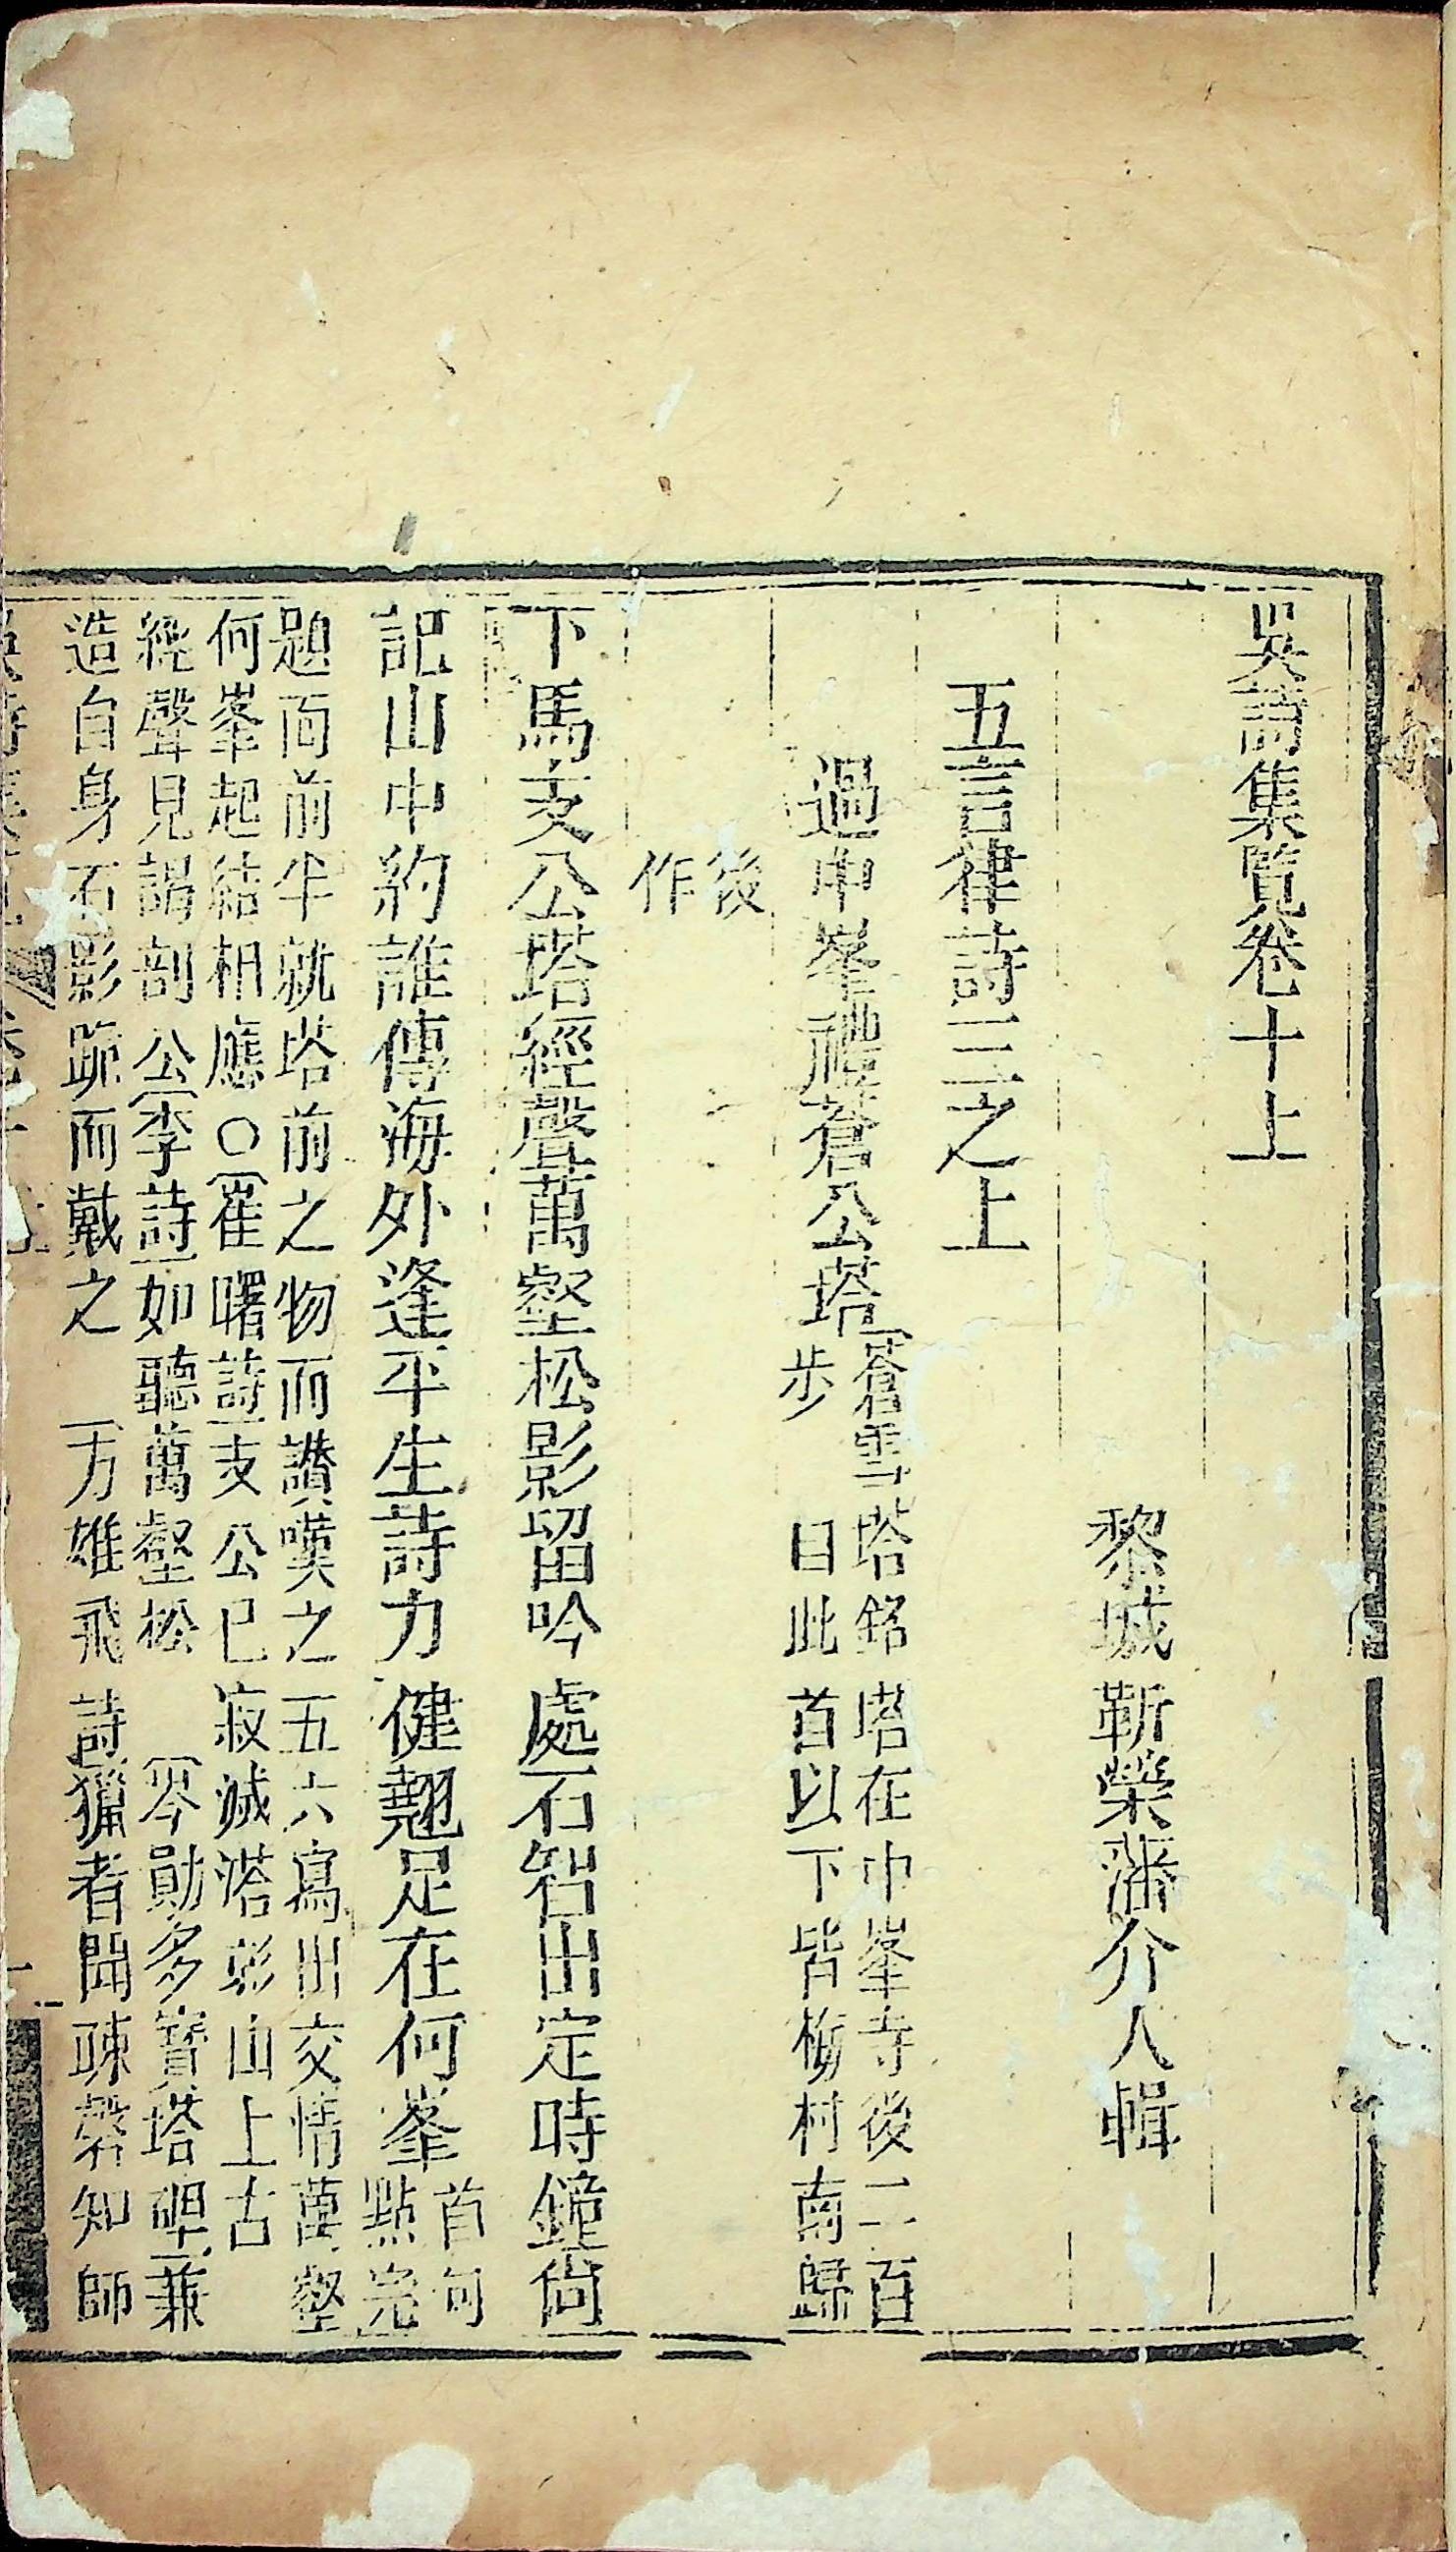 吳詩集覽卷十上
黎城靳榮藩介人輯
五言律詩三之上
過中峯禮蒼公塔
蒼雪塔銘塔在中峯寺後二百
步 目此首以下皆梅村南歸
後
作
下馬支公塔經聲萬壑松影留吟處石智出定時鐘尙
記山中約誰傳海外逢平生詩力健翹足在何峯
首句
點完
題面前半就塔前之物而讃嘆之五六寫出交情萬壑
何峯起結相應○崔曙詩支公已寂滅塔影山上古
經聲見謁剖公李詩如聽萬壑松 岑勛多寶塔碑兼
造自身石影跪而戴之 方雄飛詩獵者聞疎磬知師